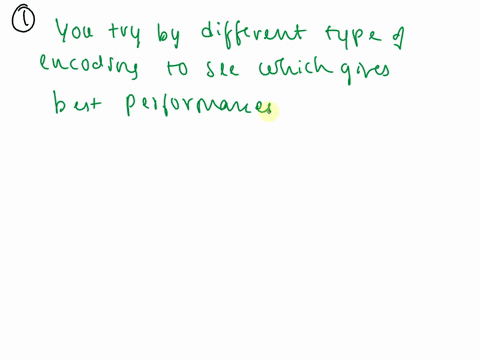 ① You try by different type of
encoding to see which gives
best performances